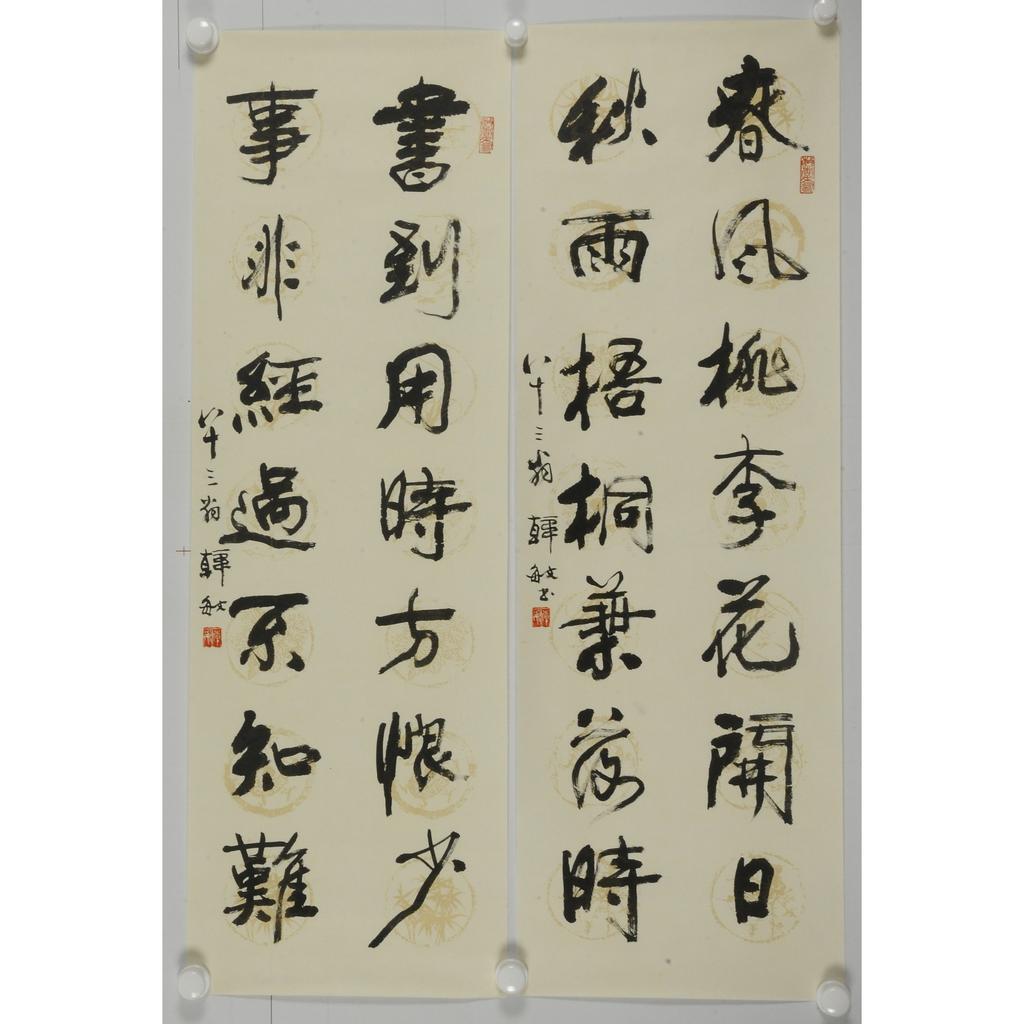 春風桃李花開日
秋雨梧桐葉落時
八十三翁 韓敏书
書到用時方恨少
事非經過不知難
八十三翁 韓敏